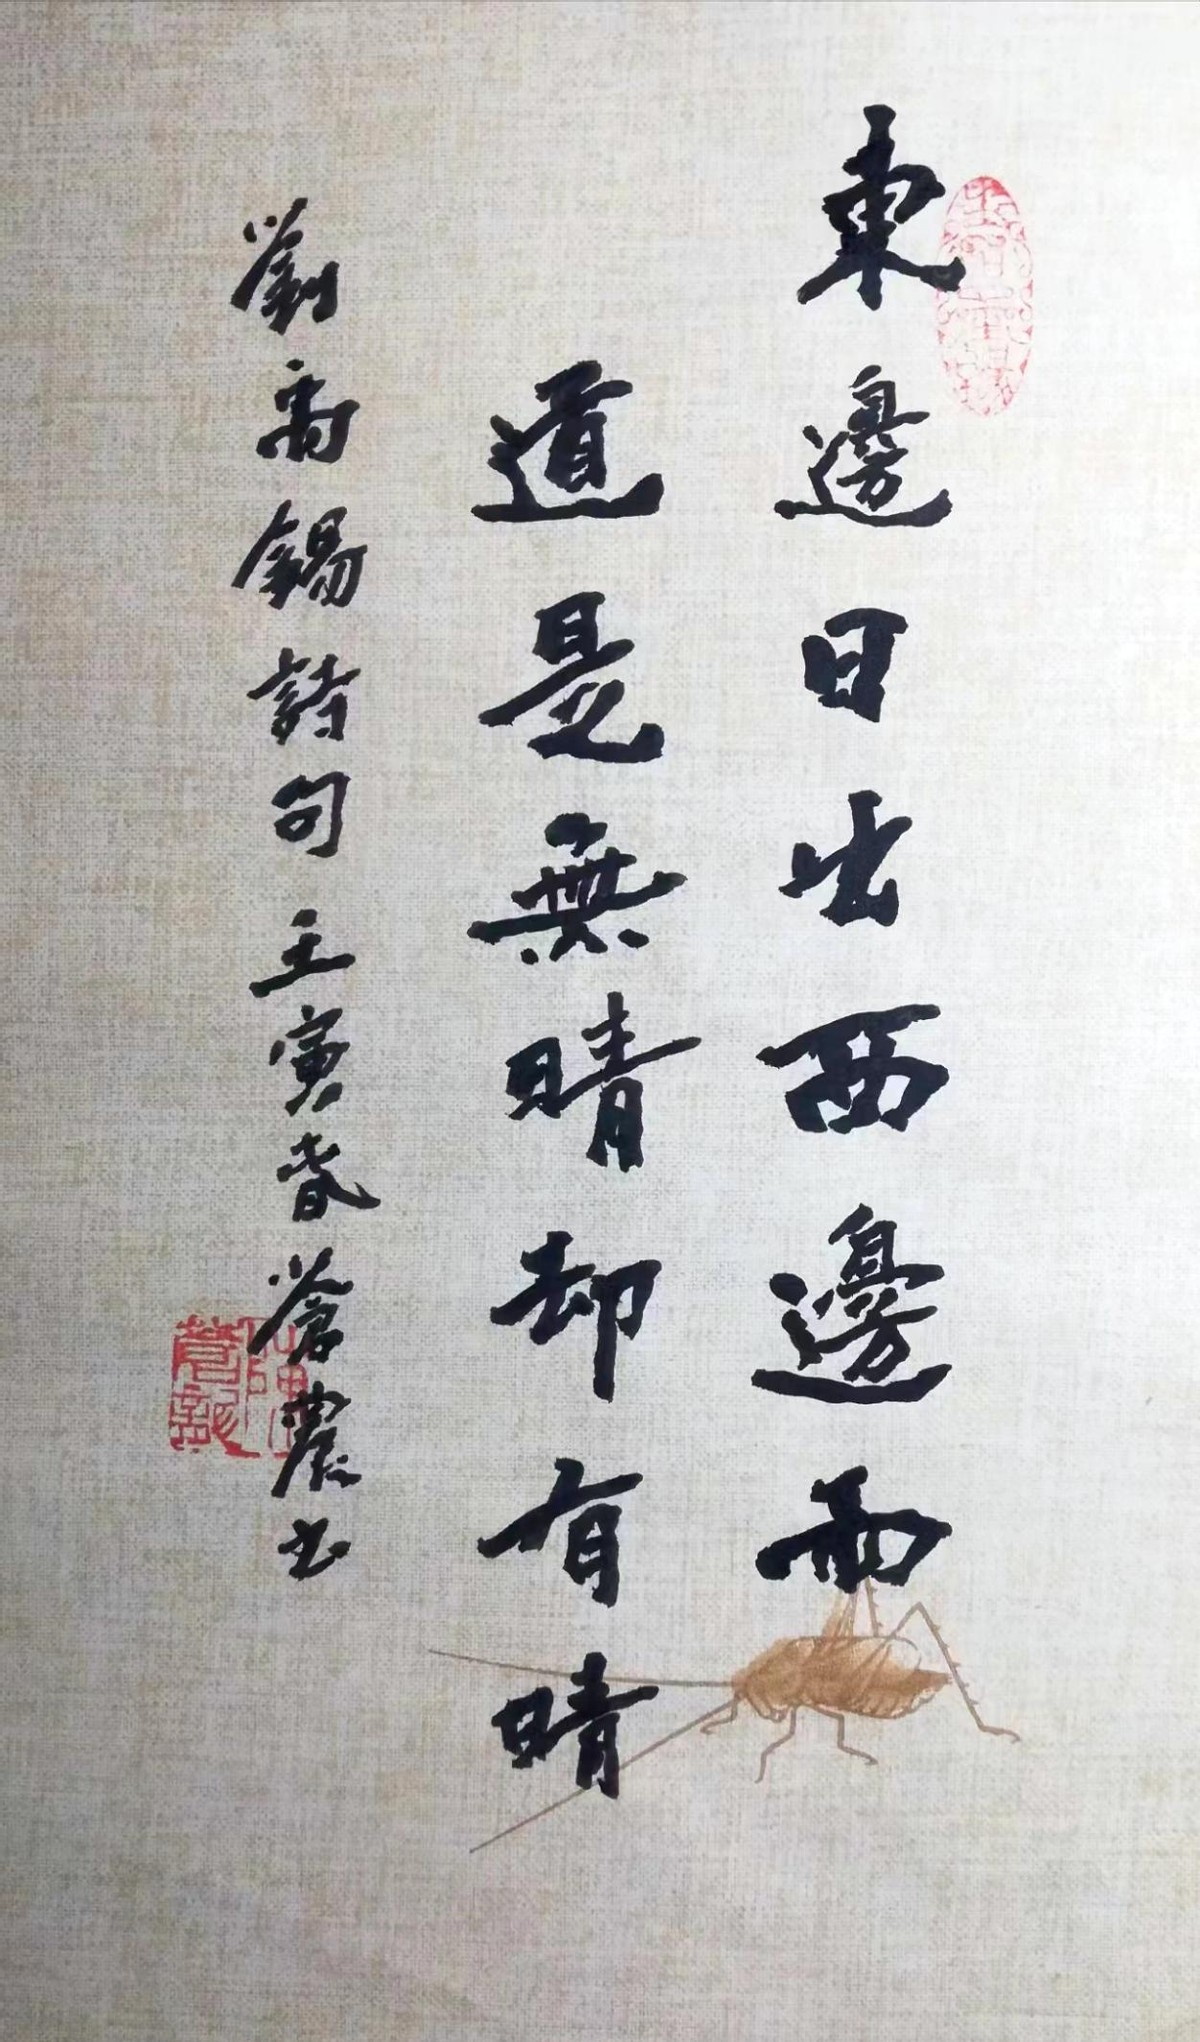 東邊日出西邊雨
道是無晴却有晴
劉禹錫詩句 壬寅春 蒼農书